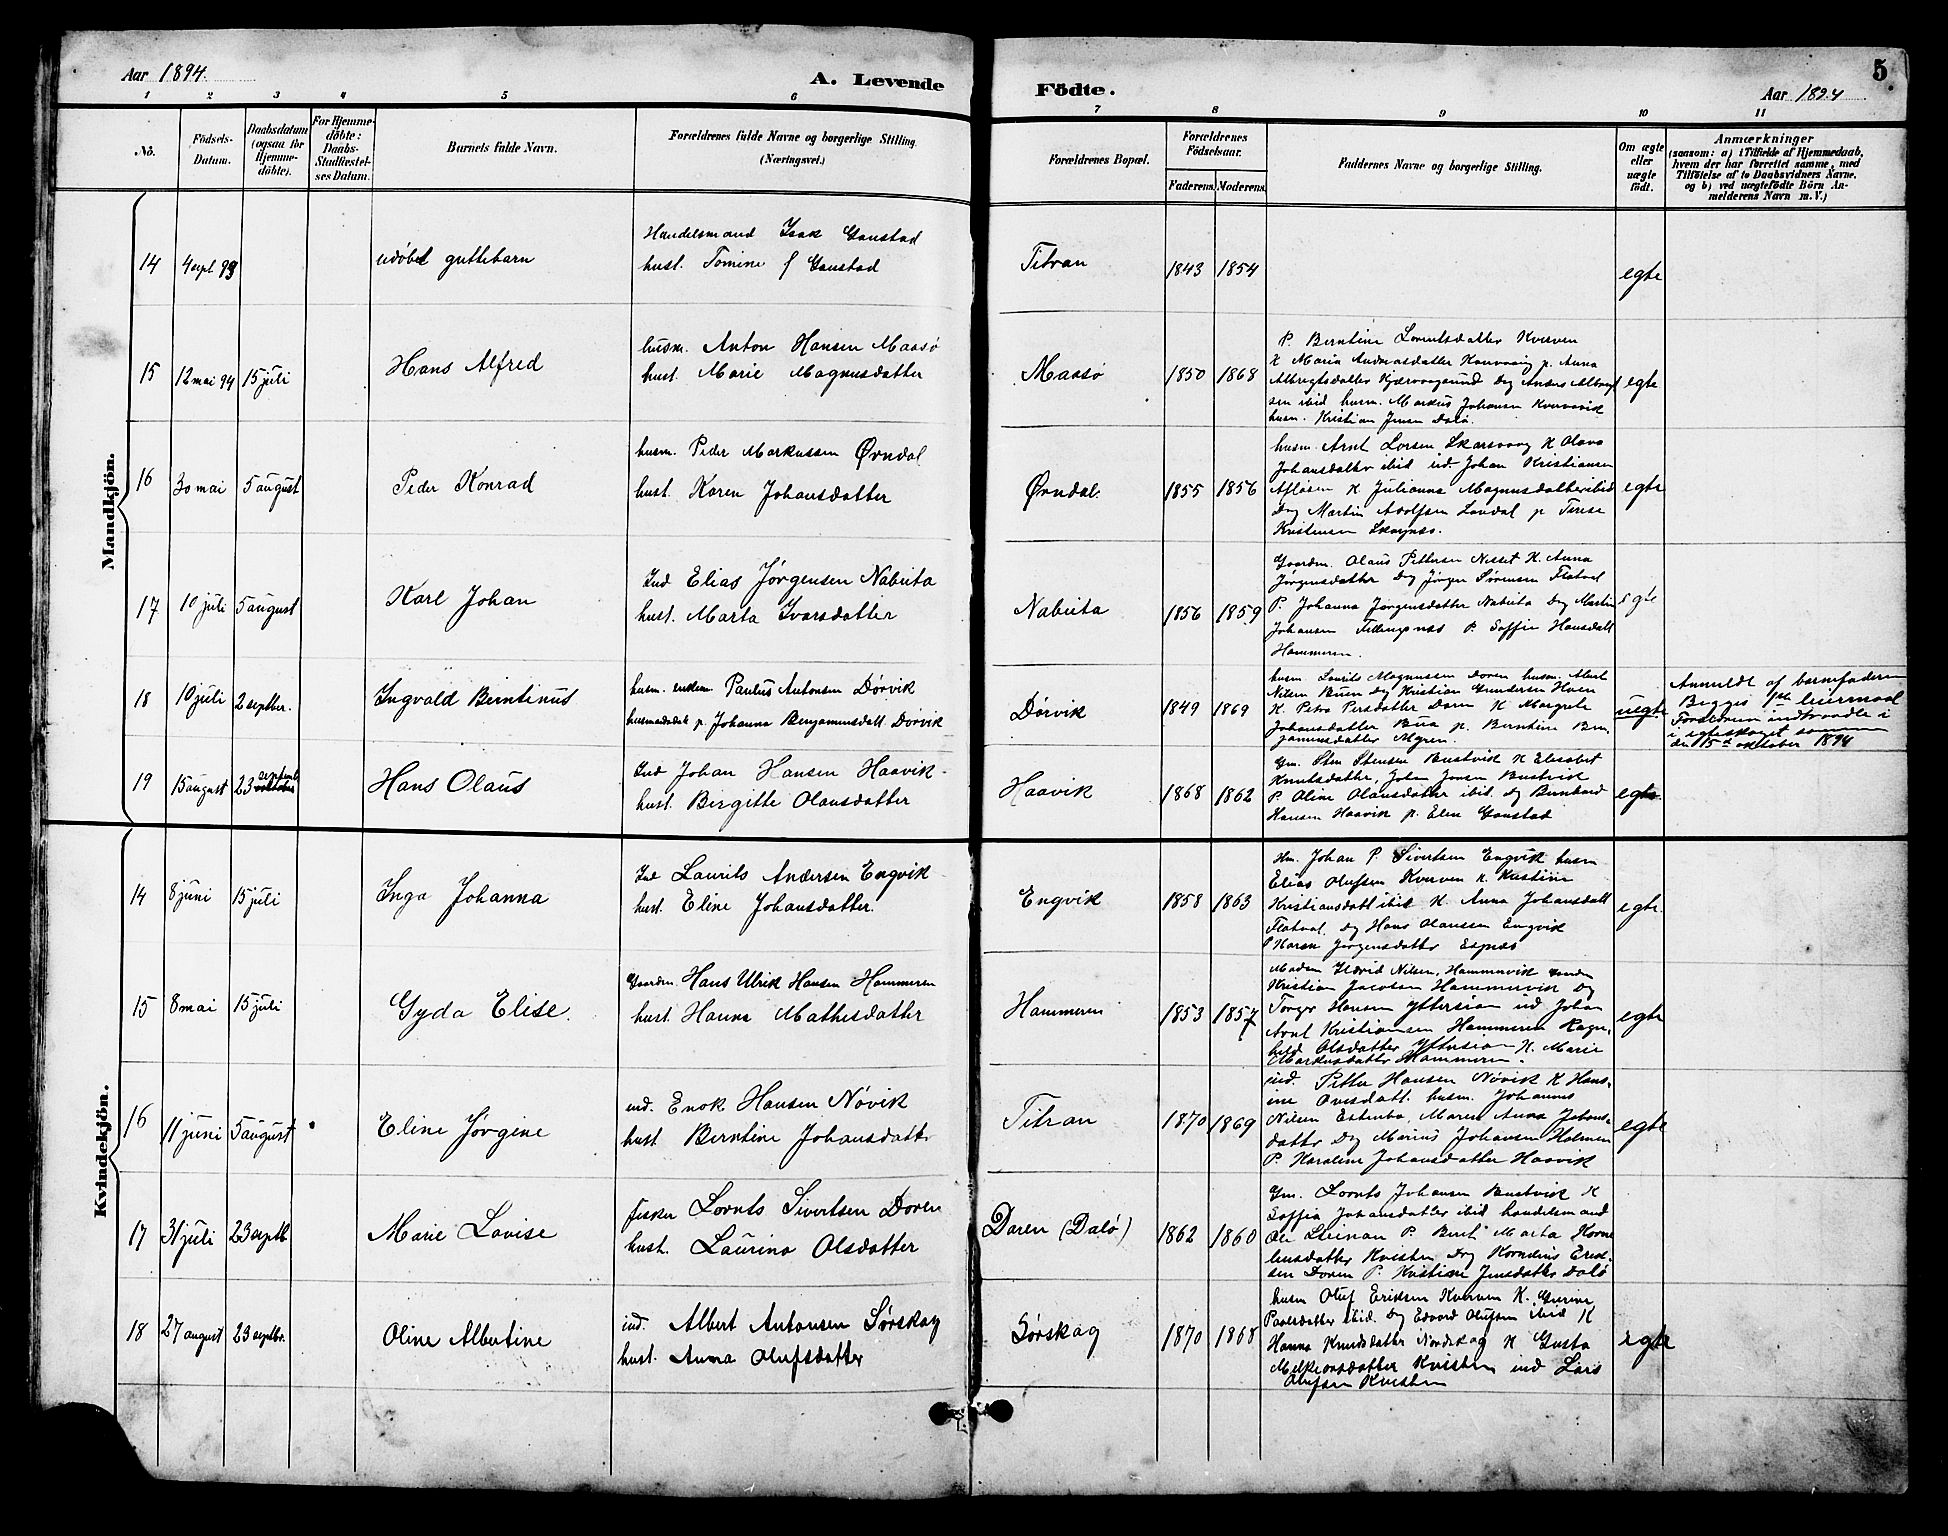 Aar 1894.
A. Levende
Födte.
Aar 1894
5
1 2 3 4 5 6 7 8 9 10 11
No.
Födsels-
Datum.
Daabsdatum
(ogsaa for
Hjemme-
döbte).
For Hjemme-
döbte:
Daabs-
Stadfæstel-
ses Datum.
Barnets fulde Navn.
Forældrenes fulde Navne og borgerlige Stilling
(Næringsvei.)
Forældrenes Bopæl.
Forældrenes
Födselsaar.
Faderens.
Moderens.
Faddernes Navne og borgerlige Stilling.
Om ægte
eller
uægte
födt.
Anmærkninger
(saasom: a) i Tilfælde af Hjemmedaab,
hvem der har forrettet samme, med
Tilföielse af to Daabsvidners Navne,
og b) ved uægtefödte Börn An-
melderens Navn m. V.)
Mandkjön.
14
4 sept 93
udøbt guttebarn
Handelsmand Isak Gaustad
hust. Tomine Gaustad
Titran
1843 1854
egte
15
12 mai 94
15 juli
Hans Alfred
husm. Anton Hansen Maasø
hust. Marie Magnusdatter
Maasø
1850 1868
P. Berntine Lorentsdatter Kverven
K Maria Andreasdatter p. Anna
Albregtsdatter Kjærvaagsund Drg Anders Albregt
sen ibid husm. Markus Johansen
husm. Kristian Jensen Dalø.
egte
16
30 mai
5 august
Peder Konrad
husm. Peder Markussen Ørndal
hust. Karen Johansdatter
Ørndal.
1855 1856
husm. Arnt Larsen Skarsvaag K Olava
Johansdatter ibid ind. Johan Kristiansen
K Julianna Magnusdatter ibid
Drg Martin Adolfsen p Terese
Kristensen
egte
17
10 juli
5 august
Karl Johan
Ind Elias Jørgensen Nabeita
hust. Marta Ivarsdatter
Nabeita
1856 1859
Gaardm. Olaus Pettersen Nesset K. Anna
Jørgensdatter Drg Jørgen Sørensen Flatval
P. Johanna Jørgensdatter Nabeita Drg Martin
Johansen P. Soffie Hansdatt
Hammeren.
egte
18
10 juli
2 septbr.
Ingvald Berntinus
husm. enkem. Paulus Antonsen Dørvik
husmandsdat p. Johanna Benjaminsdatt. Dørvik
Dørvik
1849 1869
husm. Laurits Magnussen Daren husm. Albert
Nilsen Buen Drg Kristian Gundersen
K. Petra Persdatter Daren K Margrete
Johansdatter Bua p. Berntine Ben
jaminsdatter
uegte
Anmeldt af barnefaderen
Begges 1ste leiermaal
Forældrene indtraadte i
i egteskaget sammen
den 15de oktober 1894
19
15 august
23 septemb
oktober
Hans Olaus
Ind Johan Hansen Haavik
hust. Birgitte Olausdatter
Haavik
1868 1862
Gm. Sten Stensen Bustvik K Elesabet
Knutsdatter, Johan Jonsen Bustvik
P. Oline Olausdatter ibid. Drg Bernhard
Hansen Haavik p. Elen Gaustad
egte
Kvindekjön.
14
8 juni
15 juli
Inga Johanna
Ind Laurits Andersen Engvik
hust. Eline Johansdatter.
Engvik
1858 1863
Hm. Johan P. Sivertsen Engvik husm
Elias Olufsen Kverven K. Kristine
Kristiansdatt ibid K. Anna Johansdatt
Flatval, Drg Hans Olaussen Engvik
P Karen Jørgensdatter Espnes
egte
15
8 mai
15 juli
Gyda Elise.
Gaardm. Hans Ulrik Hansen Hammeren
hust. Hanna Mathisdatter
Hammeren
1853 1857
Madam Nilsen, Hammervik
Kristian Jacobsen Hammervik Drg
Torger Hansen Yttersian ind Johan
Arnt Kristiansen Hammeren Ragn-
hild Olsdatter Yttersian K. Marie
Markusdatter Hammeren.
egte
16
11 juni
5 august
Eline Jørgine
ind. Enok Hansen Nøvik
hust Berntine Johansdatt
Titran
1870 1869
ind. Petter Hansen Nøvik K Hans-
ine husm. Johannes
Nilsen Maren Anna Johans-
datter Drg Marius Johansen Holmen
P. Karoline Johansdatter Haavik
egte
17
31 juli
23 septb.
Marie Lovise
fisker Lornts Sivertsen Daren
hust. Laurina Olsdatter
Daren (Dalø)
1862 1860
Gm. Lornts Johansen Bustvik K
Soffia Johansdatter ibid handelsmand
Ole Steinan P. Berit Marta Korne
liusdatter Kvisten Drg Kornelius
sen Daren P. Kristine Jensdatter Dalø
18
27 august
23 septbr.
Oline Albertine
ind. Albert Antonsen Sørskag
hust. Anna Olufsdatter
Sørskag
1870 1868
husm Oluf Eriksen Kverven K. Gurine
Paulsdatter ibid. Drg Edvard Olufsen ibid K
Hanna Knudsdatter Nordskag K Gusta
Melkeorsdatter Kvisten ind Lars
Olufsen Kvisten
egte